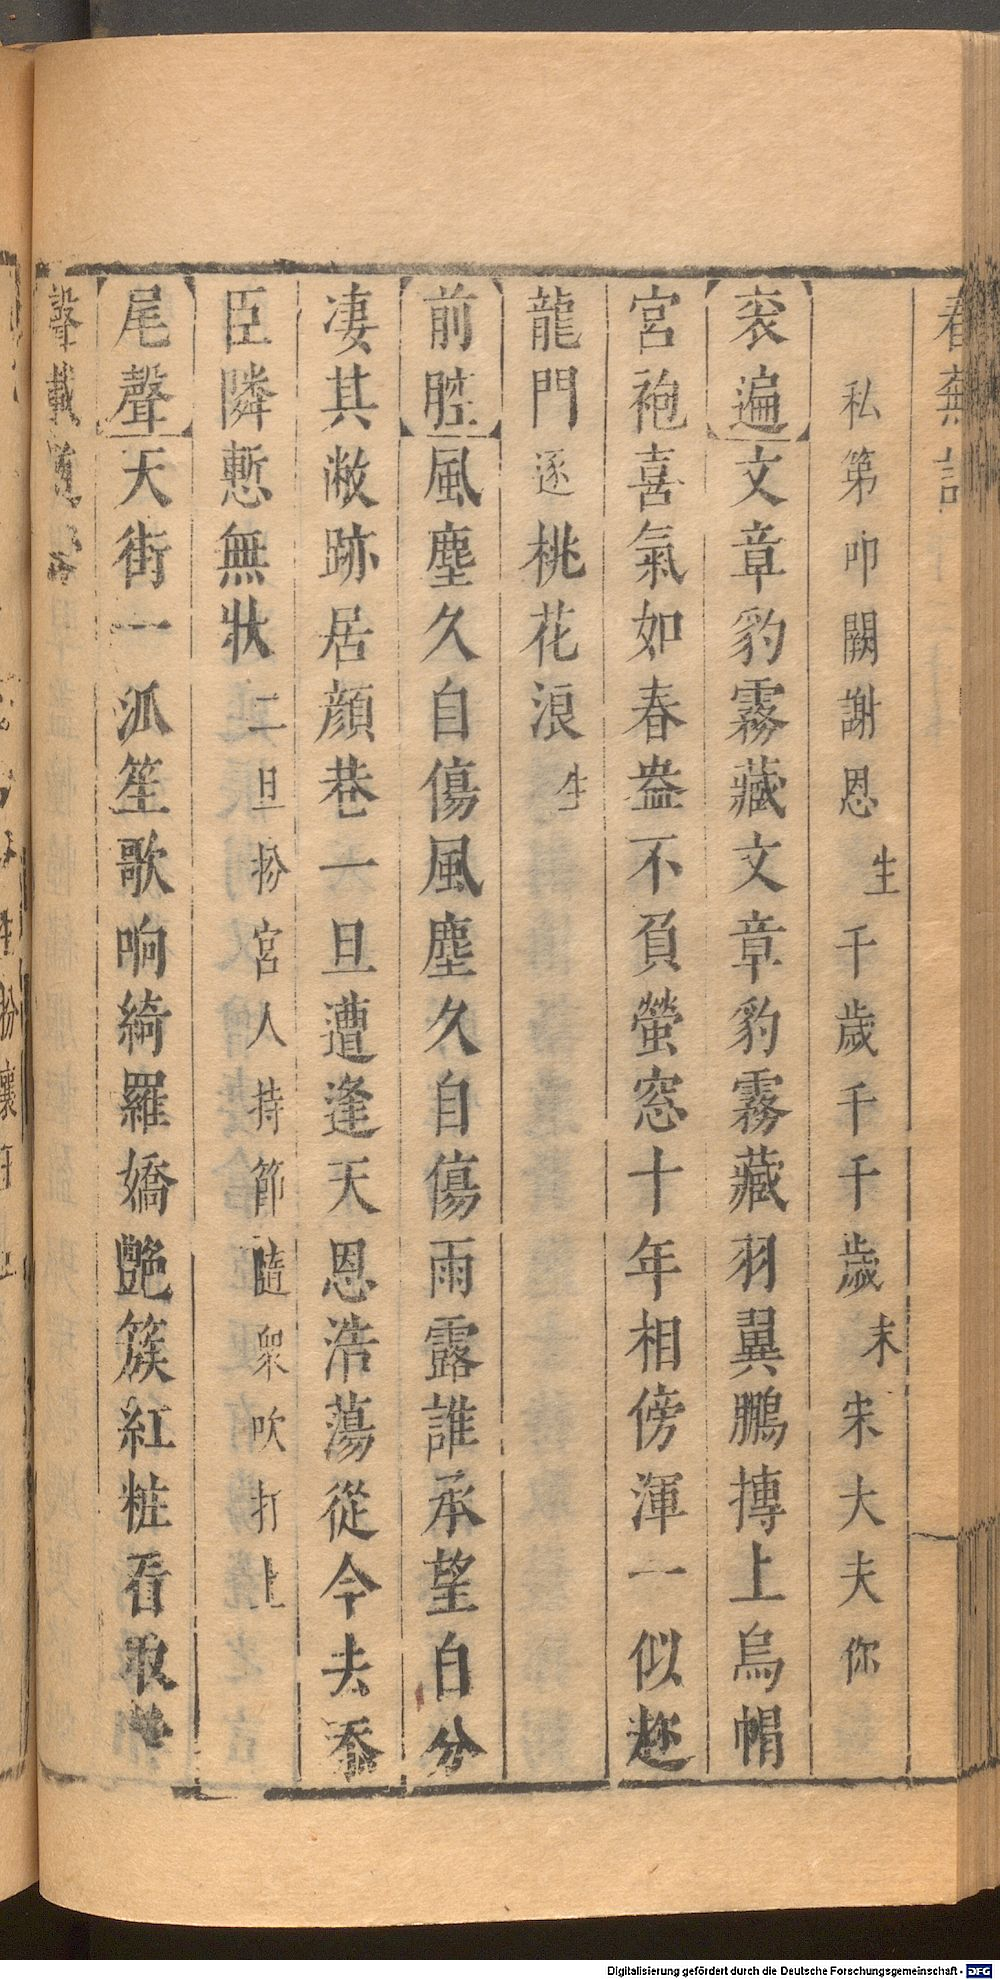 春蕪記
私第叩闕謝恩 生 千歲千千歲 末 宋大夫你
衮遍 文章豹霧藏文章豹霧藏羽翼鵬摶上烏帽
宮袍喜氣如春盎不負螢窓十年相傍渾一似趂
龍門逐桃花浪 生
前腔 風塵久自傷風塵久自傷雨露誰承望自分
凄其敝跡居顔巷一旦遭逢天恩浩蕩從今去忝
臣隣慙無狀 二旦扮宮人持節隨衆吹打上
尾聲 天街一派笙歌响綺羅嬌艷簇紅粧看取
聲載
Digitalisierung gefördert durch die Deutsche Forschungsgemeinschaft - DFG